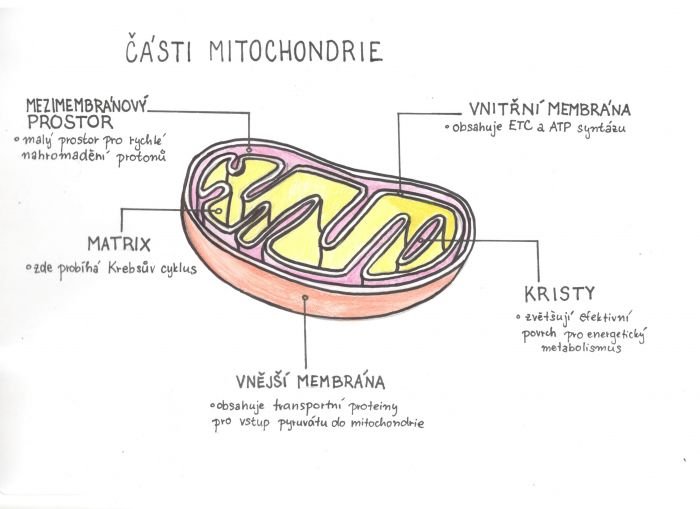 ČÁSTI MITOCHONDRIE
MEZIMEMBRÁNOVÝ
PROSTOR
malý prostor pro rychlé
nahromadění protonů
VNITŘNÍ MEMBRÁNA
obsahuje ETC a ATP syntázu
MATRIX
zde probíhá Krebsův cyklus
KRISTY
zvětšují efektivní
povrch pro energetický
metabolismus
VNĚJŠÍ MEMBRÁNA
obsahuje transportní proteiny
pro vstup pyruvátu do mitochondrie